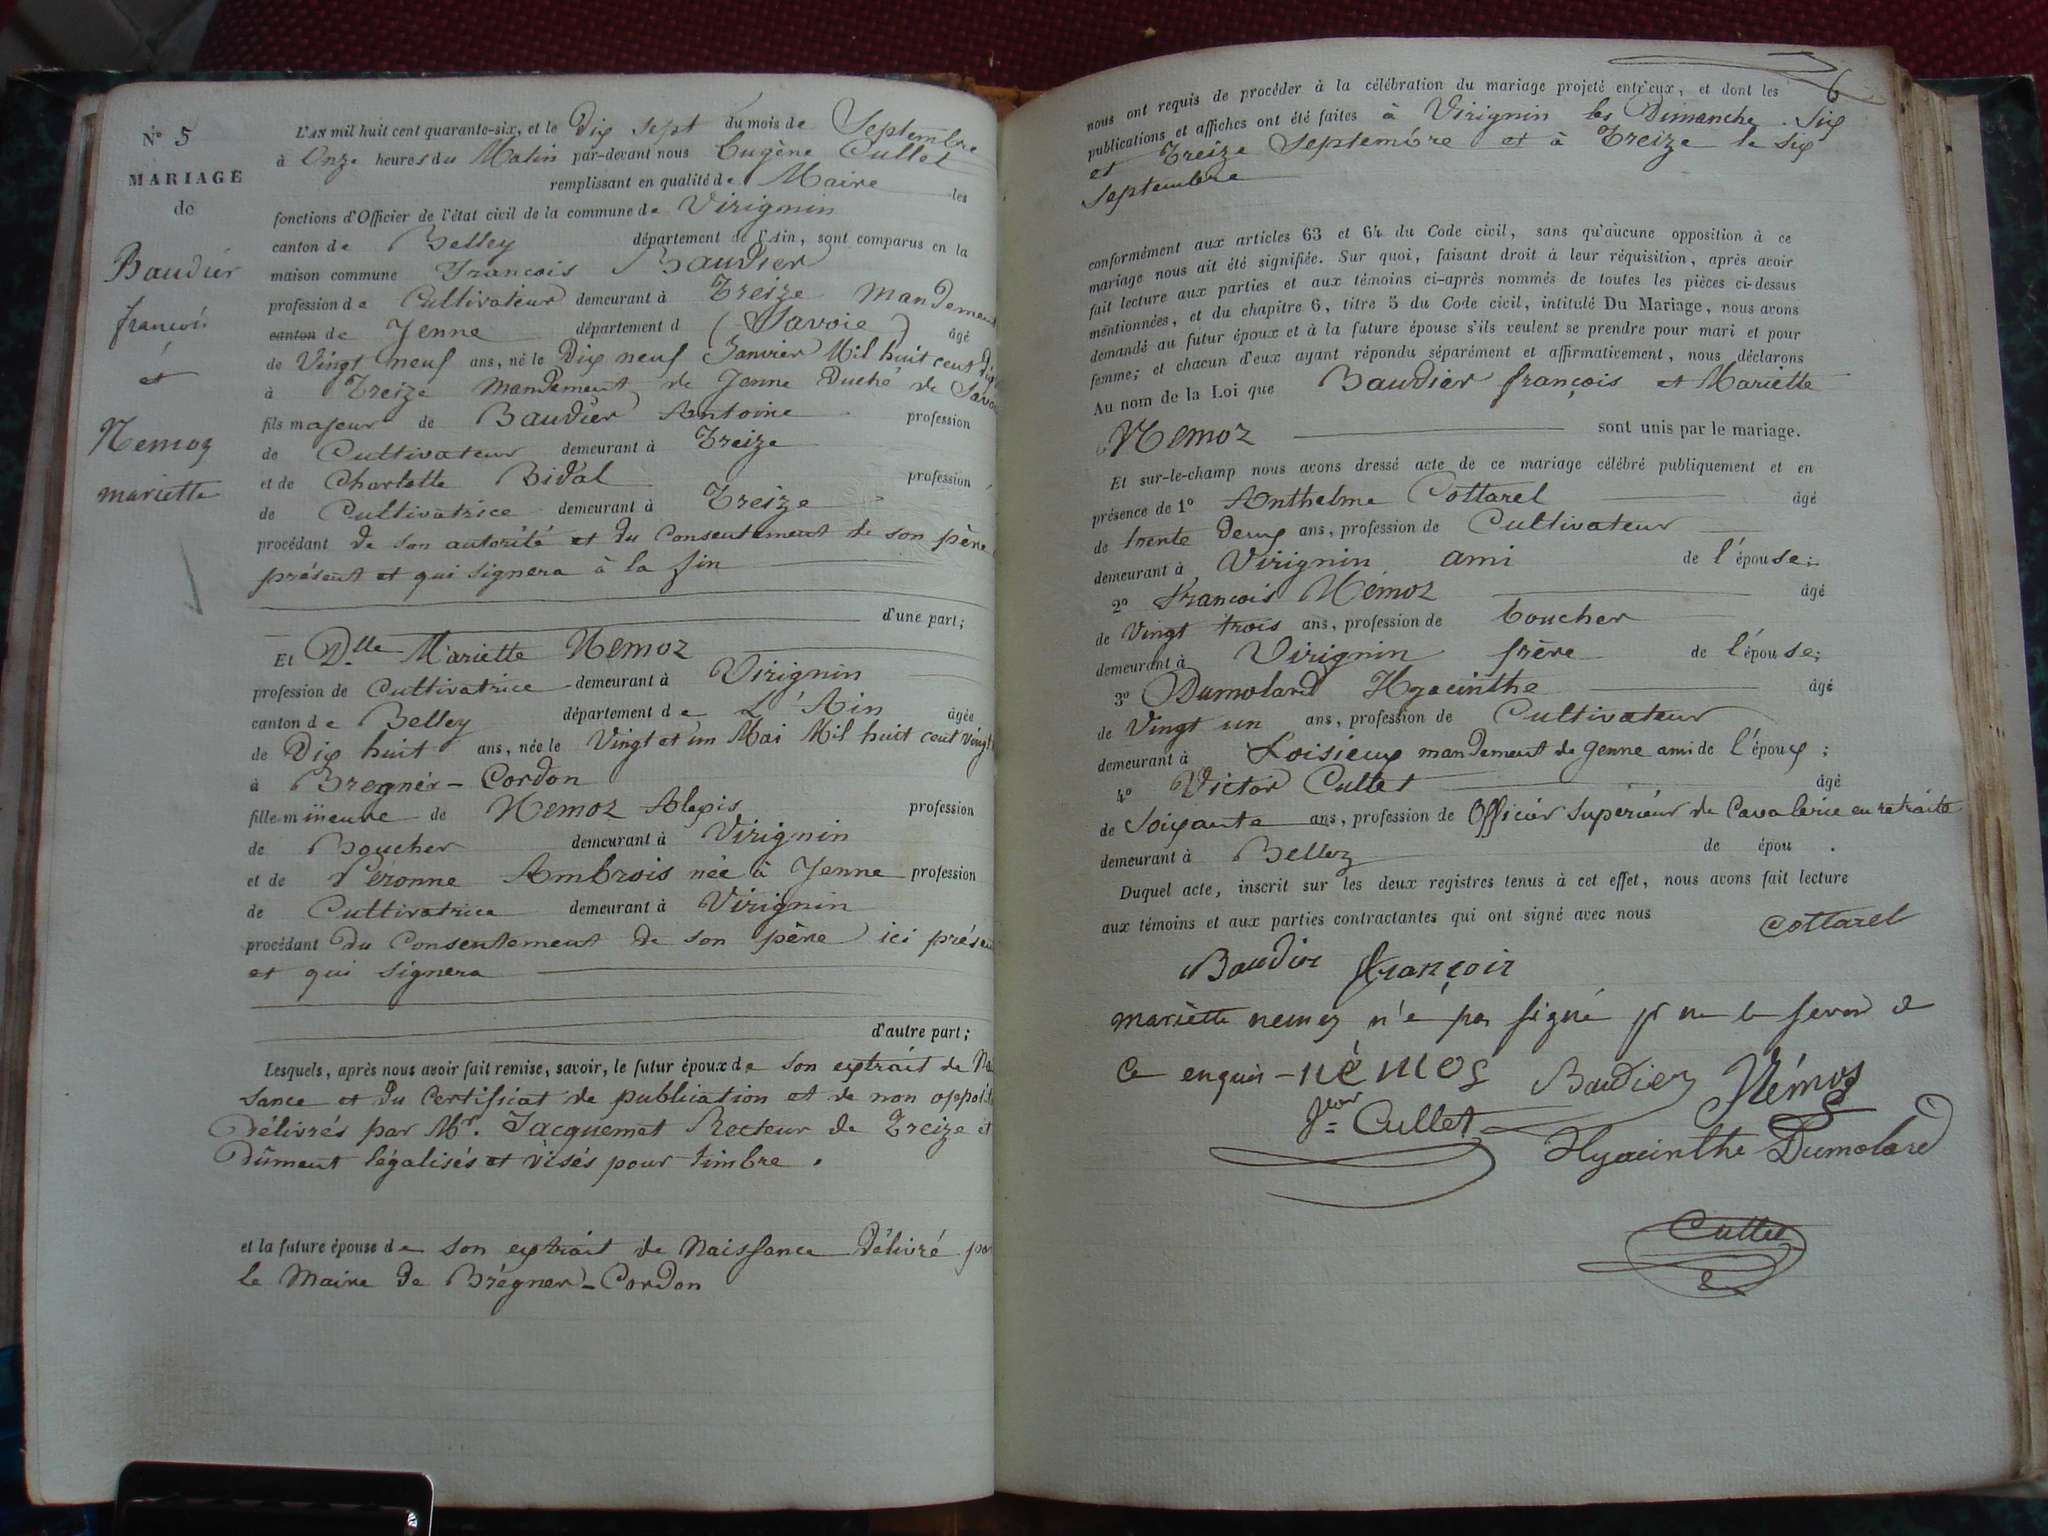 N° 5
MARIAGE
de
Baudier
françois
et
Nemoz
mariette
L'AN mil huit cent quarante-six, et le Dix sept du mois de Septembre
à Onze heures du Matin par-devant nous Eugène Cullet
remplissant en qualité de Maire les
fonctions d'Officier de l'état civil de la commune de Virignin
canton de Belley département de l'Ain, sont comparus en la
maison commune François Baudier
profession de Cultivateur demeurant à Treize Mandement
canton de Yenne département d (Savoie) âgé
de Vingt neuf ans, né le Dix neuf Janvier Mil huit cent Dix
à Treize Mandement de Yenne Duché de Savoie
fils majeur de Baudier Antoine profession
de Cultivateur demeurant à Treize
et de Charlotte Bidal profession
de Cultivatrice demeurant à Treize
procédant de son autorité et du Consentement de son père
présent et qui signera à la fin
d'une part;
Et Dlle Mariette Nemoz
profession de Cultivatrice demeurant à Virignin
canton de Belley département de L'Ain âgée
de Dix huit ans, née le Vingt et un Mai Mil huit cent vingt
à Bregnér-Cordon
fille mineure de Nemoz Alexis profession
de Boucher demeurant à Virignin
et de Péronne Ambrois née à Yenne profession
de Cultivatrice demeurant à Virignin
procédant du Consentement de son père ici présent
et qui signera
d'autre part;
Lesquels, après nous avoir fait remise, savoir, le futur époux de son extrait de Nais
sance et du Certificat de publication et de non opposit
Délivrés par Mr. Jacquemet Recteur de Treize et
Dûment légalisés et visés pour timbre.
et la future épouse de son extrait de Naissance Délivré par
le Maire de Brégner-Cordon
6
nous ont requis de procéder à la célébration du mariage projeté entr'eux, et dont les
publications et affiches ont été faites à Virignin les Dimanche Six
et Treize Septembre et à Treize le Six
Septembre
conformément aux articles 63 et 64 du Code civil, sans qu'aucune opposition à ce
mariage nous ait été signifiée. Sur quoi, faisant droit à leur réquisition, après avoir
fait lecture aux parties et aux témoins ci-après nommés de toutes les pièces ci-dessus
mentionnées, et du chapitre 6, titre 5 du Code civil, intitulé Du Mariage, nous avons
demandé au futur époux et à la future épouse s'ils veulent se prendre pour mari et pour
femme; et chacun d'eux ayant répondu séparément et affirmativement, nous déclarons
Au nom de la Loi que Baudier françois et Mariette
Nemoz sont unis par le mariage.
Et sur-le-champ nous avons dressé acte de ce mariage célébré publiquement et en
présence de 1° Anthelme Cottarel âgé
de trente Deux ans, profession de Cultivateur
demeurant à Virignin ami de l'épouse;
2° François Némoz âgé
de Vingt trois ans, profession de boucher
demeurant à Virignin frère de l'épouse;
3° Dumolard Hyacinthe âgé
de Vingt un ans, profession de Cultivateur
demeurant à Loisieux mandement de Yenne ami de l'époux;
4° Victor Cullet âgé
de Soixante ans, profession de Officier Supérieur de Cavalerie en retraite
demeurant à Belley de épou .
Duquel acte, inscrit sur les deux registres tenus à cet effet, nous avons fait lecture
aux témoins et aux parties contractantes qui ont signé avec nous Cottarel
Baudier françois
mariette nemoz n'a pas signé pr ne le savoir de
ce enquis - némos Baudier Némos
Cullet Hyacinthe Dumolard
Cullet